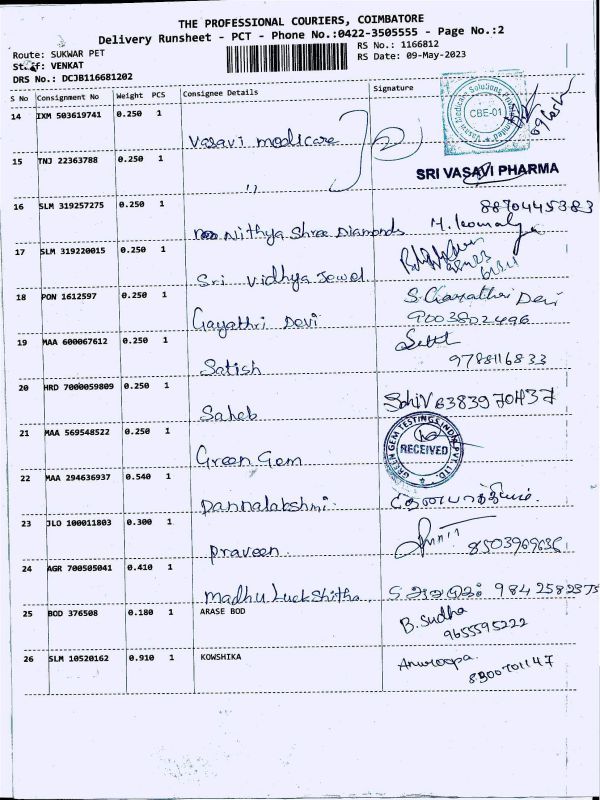 THE PROFESSIONAL COURIERS, COIMBATORE
Delivery Runsheet - PCT - Phone No.:0422-3505555 - Page No.:2
Route: SUKWAR PET
RS No.: 1166812
Staff: VENKAT
RS Date: 09-May-2023
DRS No.: DCJB116681202
S No Consignment No Weight PCS Consignee Details Signature
14 IXM 503619741 0.250 1
Vasavi medicare
CBE-01
15 TNJ 22363788 0.250 1
,,
SRI VASAVI PHARMA
16 SLM 319257275 0.250 1
8870445383
Nithya Shree Diamonds
17 SLM 319220015 0.250 1
Sri Vidhya Jewel
18 PON 1612597 0.250 1
Gayathri Devi
S. Gayathri Devi
9003802496
19 MAA 600067612 0.250 1
Satish
9788116833
20 HRD 7000059809 0.250 1
Saheb
6383970437
21 MAA 569548522 0.250 1
Green Gem
GREEN GEM TESTINGS INDIA PVT. LTD.
RECEIVED
22 MAA 294636937 0.540 1
Dannalakshmi
23 JLO 100011803 0.300 1
Praveen
8503969636
24 AGR 700505041 0.410 1
Madhu Luckshitha
25 BOD 376508 0.180 1 ARASE BOD
B. Sudha
9655595222
26 SLM 10520162 0.910 1 KOWSHIKA
Anuroopa
8300701147